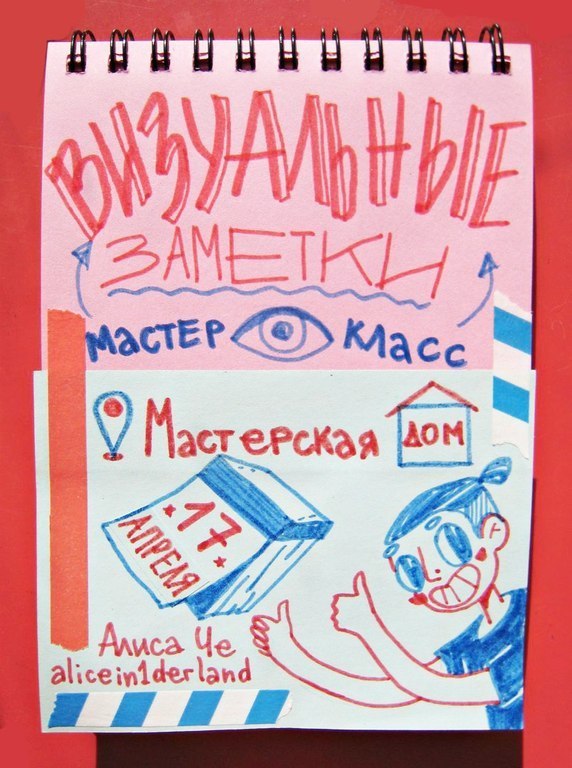 ВИЗУАЛЬНЫЕ
ЗАМЕТКИ
МАСТЕР КЛАСС
Мастерская ДОМ
17
АПРЕЛЯ
Алиса Че
alicein1derland